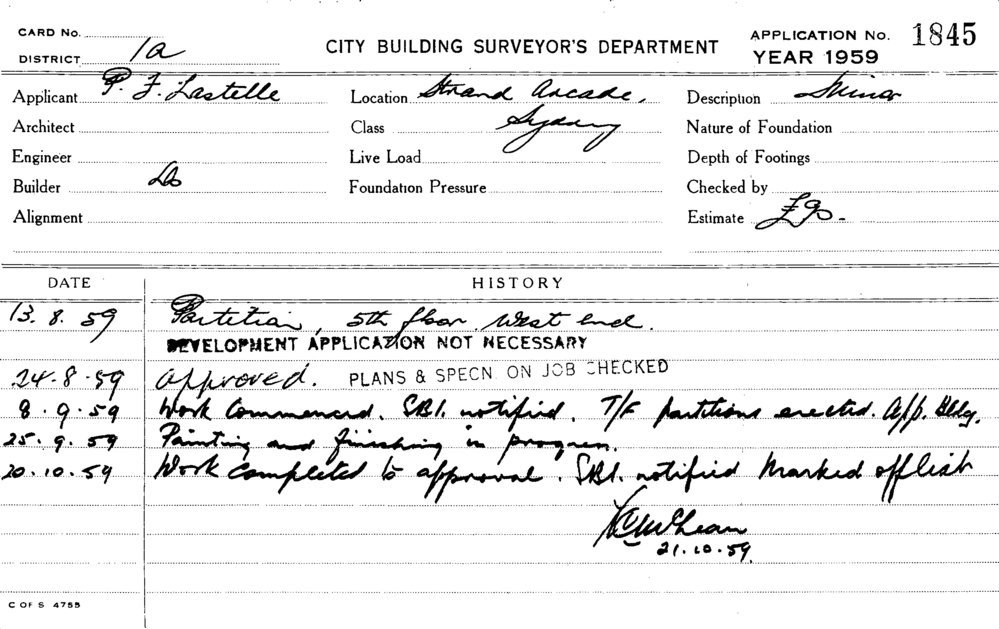 CARD No.
DISTRICT 1a
CITY BUILDING SURVEYOR'S DEPARTMENT
APPLICATION No. 1845
YEAR 1959
Applicant P. F. Lastelle
Location Strand Arcade,
Description Minor
Architect
Class Sydney
Nature of Foundation
Engineer
Live Load
Depth of Footings
Builder Do
Foundation Pressure
Checked by
Alignment
Estimate £90-
DATE HISTORY
13.8.59 Partition, 5th floor, West end.
DEVELOPMENT APPLICATION NOT NECESSARY
24.8.59 Approved. PLANS & SPECN. ON JOB CHECKED
8.9.59 Work Commenced. SBI. notified. T/F partitions erected. App. Bldg.
25.9.59 Painting and finishing in progress.
20.10.59 Work completed to approval. SBI. notified Marked off list
McLean
21.10.59.
C OF S 4755